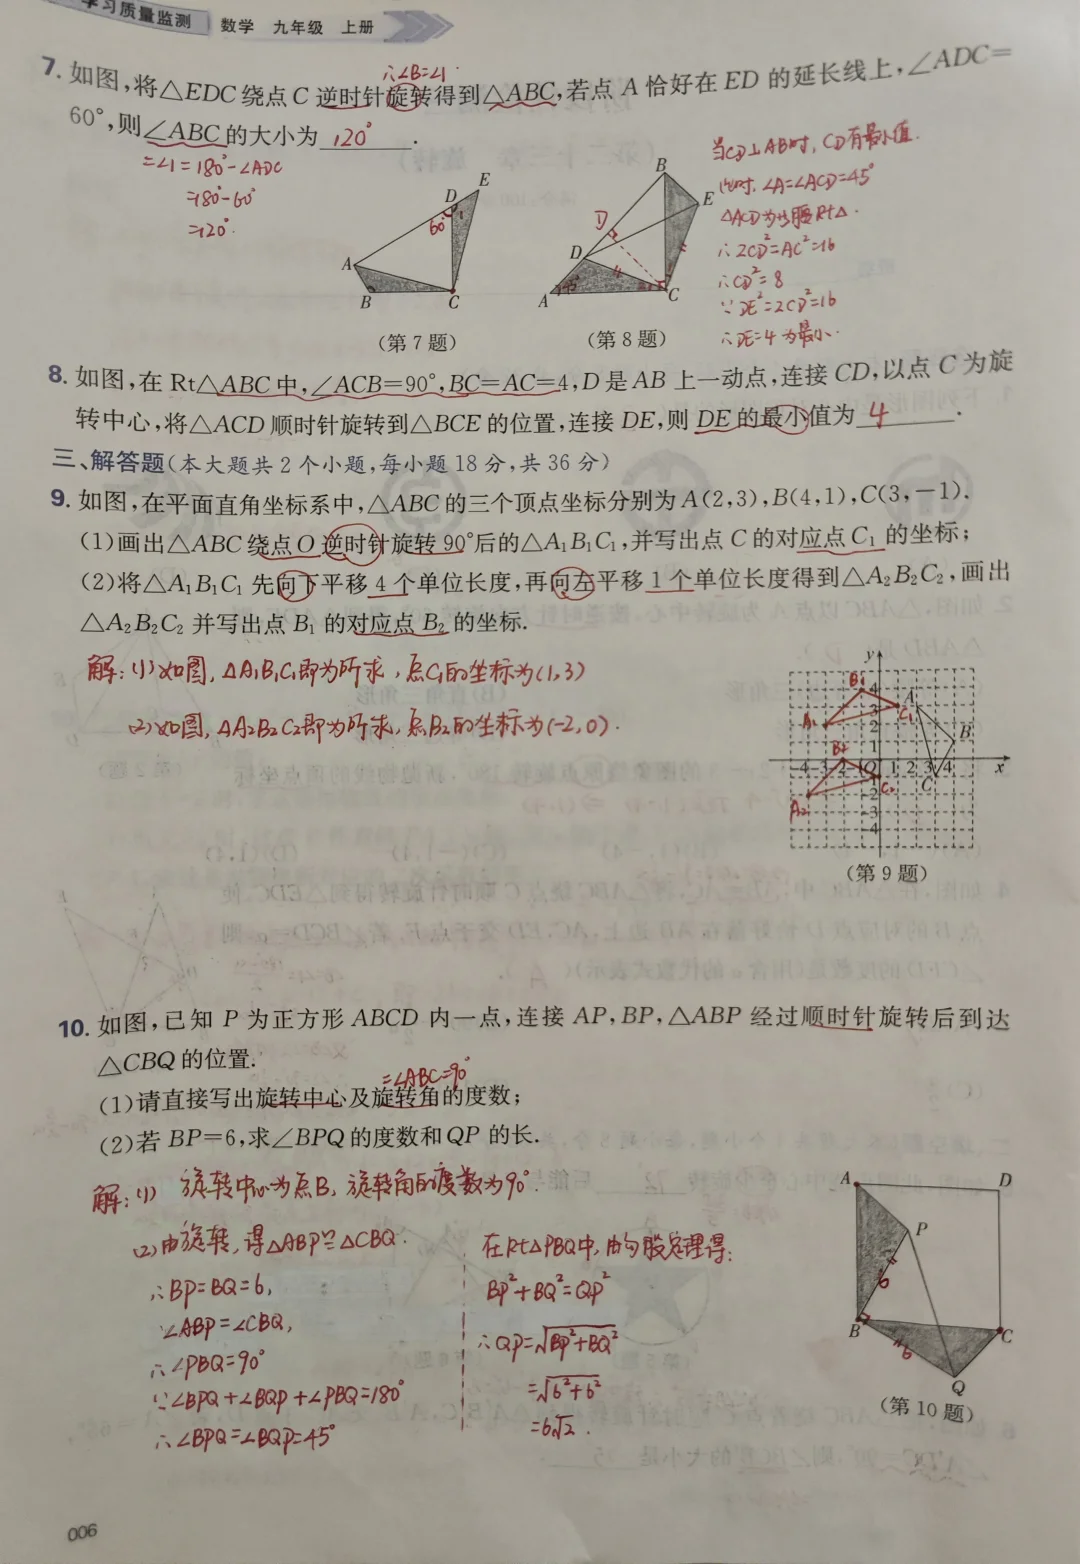 学习质量监测 数学 九年级 上册
∴∠B=∠1
7. 如图,将△EDC绕点C逆时针旋转得到△ABC,若点A恰好在ED的延长线上,∠ADC=
60°,则∠ABC的大小为 120° .
=∠1=180°-∠ADC
=180°-60°
=120°.
当CD⊥AB时, CD有最小值.
此时, ∠A=∠ACD=45°
△ACD为等腰Rt△.
∴2CD²=AC²=16
∴CD²=8
∵DE²=2CD²=16
∴DE=4为最小.
A B C D E 60° 1
(第7题)
A B C D E D 4 45°
(第8题)
8. 如图,在Rt△ABC中,∠ACB=90°,BC=AC=4,D是AB上一动点,连接CD,以点C为旋
转中心,将△ACD顺时针旋转到△BCE的位置,连接DE,则DE的最小值为 4 .
三、解答题(本大题共2个小题,每小题18分,共36分)
9. 如图,在平面直角坐标系中,△ABC的三个顶点坐标分别为A(2,3),B(4,1),C(3,-1).
(1)画出△ABC绕点O逆时针旋转90°后的△A₁B₁C₁,并写出点C的对应点C₁的坐标;
(2)将△A₁B₁C₁先向下平移4个单位长度,再向左平移1个单位长度得到△A₂B₂C₂,画出
△A₂B₂C₂并写出点B₁的对应点B₂的坐标.
解:(1)如图,△A₁B₁C₁即为所求,点C₁的坐标为(1,3)
(2)如图,△A₂B₂C₂即为所求,点B₂的坐标为(-2,0).
y
B₁ 4 A
A₁ 3 C₁
2 B
1
B₂
-4 -3 -2 -1 O 1 2 3 4 x
C₂ C
A₂ -2
-3
-4
(第9题)
10. 如图,已知P为正方形ABCD内一点,连接AP,BP,△ABP经过顺时针旋转后到达
△CBQ的位置.
=∠ABC=90°
(1)请直接写出旋转中心及旋转角的度数;
(2)若BP=6,求∠BPQ的度数和QP的长.
解:(1) 旋转中心为点B, 旋转角的度数为90°.
(2)由旋转,得△ABP≌△CBQ.
∴BP=BQ=6,
∠ABP=∠CBQ,
∴∠PBQ=90°
∵∠BPQ+∠BQP+∠PBQ=180°
∴∠BPQ=∠BQP=45°
在Rt△PBQ中,由勾股定理得:
BP²+BQ²=QP²
∴QP=√BP²+BQ²
=√6²+6²
=6√2.
A D
P
6
B C
6
Q
(第10题)
006